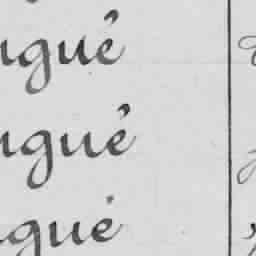 ngué
ngué
ngué